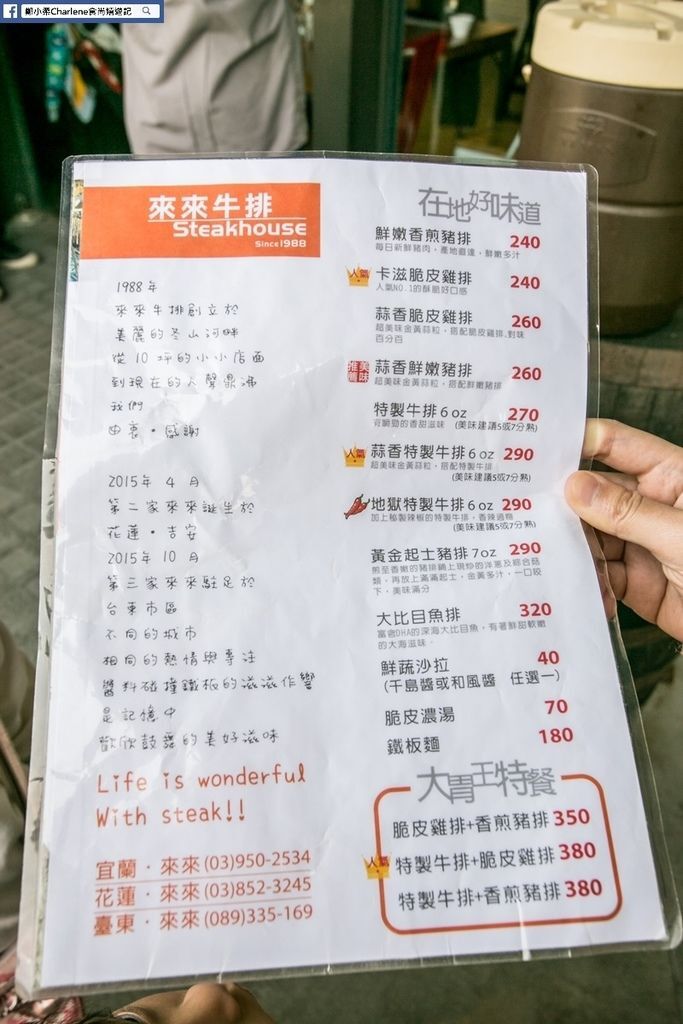 鄭小柔Charlene食尚嬉遊記
來來牛排
Steakhouse
Since1988
1988 年
來來牛排創立於
美麗的冬山河畔
從 10 坪的小小店面
到現在的人聲鼎沸
我們
由衷・感謝
2015年 4 月
第二家來來誕生於
花蓮・吉安
2015年 10 月
第三家來來駐足於
台東市區
不同的城市
相同的熱情與專注
醬料碰撞鐵板的滋滋作響
是記憶中
歡欣鼓舞的美好滋味
Life is wonderful
With steak!!
宜蘭・來來(03)950-2534
花蓮・來來(03)852-3245
臺東・來來(089)335-169
在地好味道
鮮嫩香煎豬排 240
每日新鮮豬肉，產地直達，鮮嫩多汁
人氣 卡滋脆皮雞排 240
人氣NO.1的酥脆好口感
蒜香脆皮雞排 260
超美味金黃蒜粒，搭配脆皮雞排,對味
百分百
美味推薦 蒜香鮮嫩豬排 260
超美味金黃蒜粒，搭配鮮嫩豬排
特製牛排 6 oz 270
的香甜滋味 (美味建議5或7分熟)
人氣 蒜香特製牛排 6 oz 290
超美味金黃蒜粒，搭配特製牛排
(美味建議5或7分熟)
地獄特製牛排 6 oz 290
加上秘製辣椒的特製牛排，香辣過癮
(美味建議5或7分熟)
黃金起士豬排 7oz 290
煎至香嫩的豬排鋪上現炒的洋蔥及綜合菇
類，再放上滿滿起士，金黃多汁，一口咬
下，美味滿分
大比目魚排 320
富含DHA的深海大比目魚，有著鮮甜軟嫩
的大海滋味。
鮮蔬沙拉 40
(千島醬或和風醬 任選一)
脆皮濃湯 70
鐵板麵 180
大胃王特餐
脆皮雞排+香煎豬排 350
人氣 特製牛排+脆皮雞排 380
特製牛排+香煎豬排 380